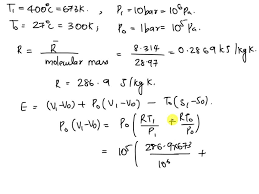 T₁ = 400°C = 673K. , P₁ = 10 bar = 10⁶ Pa.
T₀ = 27°C = 300K , P₀ = 1 bar = 10⁵ Pa.
R = R̄ / molecular mass = 8.314 / 28.97 = 0.2869 kJ/kg K.
R = 286.9 J/kg K.
E = (U₁-U₀) + P₀(V₁-V₀) - T₀(S₁-S₀).
P₀(V₁-V₀) = P₀ ( RT₁/P₁ + RT₀/P₀ )
= 10⁵ ( 286.9×673 / 10⁶ +